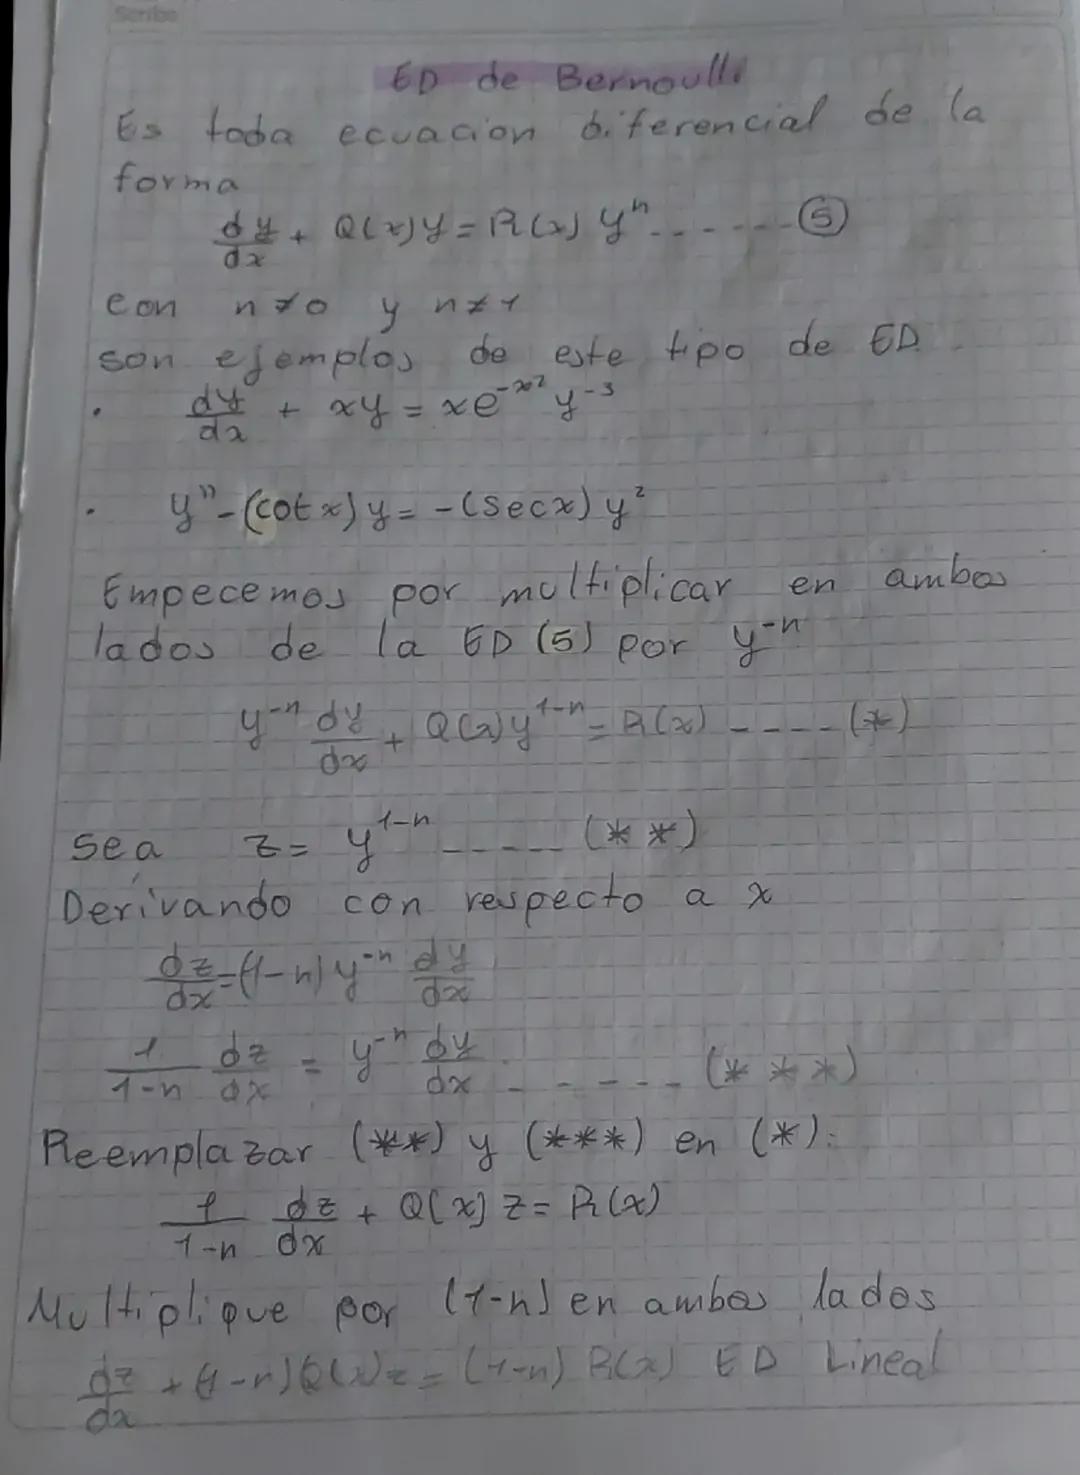 Scribe
ED de Bernoulli
Es toda ecuacion diferencial de la
forma
dy/dx + Q(x)y = R(x) yⁿ ------- (5)
con n≠0 y n≠1
son ejemplos de este tipo de ED.
• dy/dx + xy = xe^(-x²) y^(-3)
• y'' - (cot x) y = -(sec x) y²
Empecemos por multiplicar en ambos
lados de la ED (5) por y^(-n)
y^(-n) dy/dx + Q(x)y^(1-n) = R(x) ----- (*)
Sea z = y^(1-n) ----- (**)
Derivando con respecto a x
dz/dx = (1-n) y^(-n) dy/dx
1/(1-n) dz/dx = y^(-n) dy/dx ------ (***)
Reemplazar (**) y (***) en (*):
1/(1-n) dz/dx + Q(x) z = R(x)
Multiplique por (1-n) en ambos lados
dz/dx + (1-n)Q(x)z = (1-n) R(x) ED Lineal